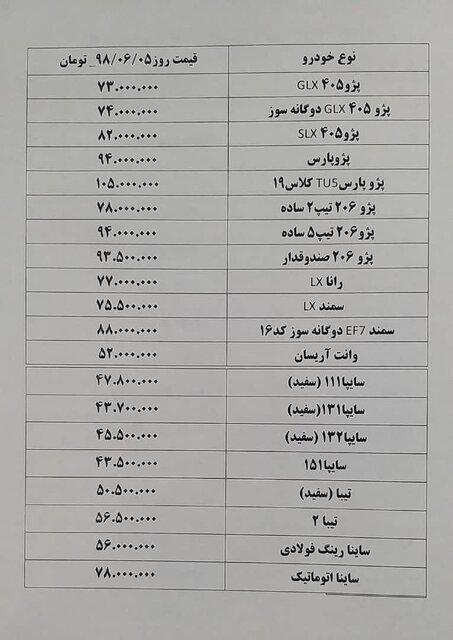 نوع خودرو قیمت روز ۹۸/۰۶/۰۵_ تومان
پژو ۴۰۵ GLX ۷۳.۰۰۰.۰۰۰
پژو ۴۰۵ GLX دوگانه سوز ۷۴.۰۰۰.۰۰۰
پژو ۴۰۵ SLX ۸۲.۰۰۰.۰۰۰
پژوپارس ۹۴.۰۰۰.۰۰۰
پژو پارس TU5 کلاس ۱۹ ۱۰۵.۰۰۰.۰۰۰
پژو ۲۰۶ تیپ۲ ساده ۷۸.۰۰۰.۰۰۰
پژو۲۰۶ تیپ۵ ساده ۹۴.۰۰۰.۰۰۰
پژو ۲۰۶ صندوقدار ۹۳.۵۰۰.۰۰۰
رانا LX ۷۷.۰۰۰.۰۰۰
سمند LX ۷۵.۵۰۰.۰۰۰
سمند EF7 دوگانه سوز کد۱۶ ۸۸.۰۰۰.۰۰۰
وانت آریسان ۵۲.۰۰۰.۰۰۰
سایپا۱۱۱ (سفید) ۴۷.۸۰۰.۰۰۰
سایپا۱۳۱ (سفید) ۴۳.۷۰۰.۰۰۰
سایپا۱۳۲ (سفید) ۴۵.۵۰۰.۰۰۰
سایپا۱۵۱ ۴۳.۵۰۰.۰۰۰
تیبا (سفید) ۵۰.۵۰۰.۰۰۰
تیبا ۲ ۵۶.۵۰۰.۰۰۰
ساینا رینگ فولادی ۵۶.۰۰۰.۰۰۰
ساینا اتوماتیک ۷۸.۰۰۰.۰۰۰